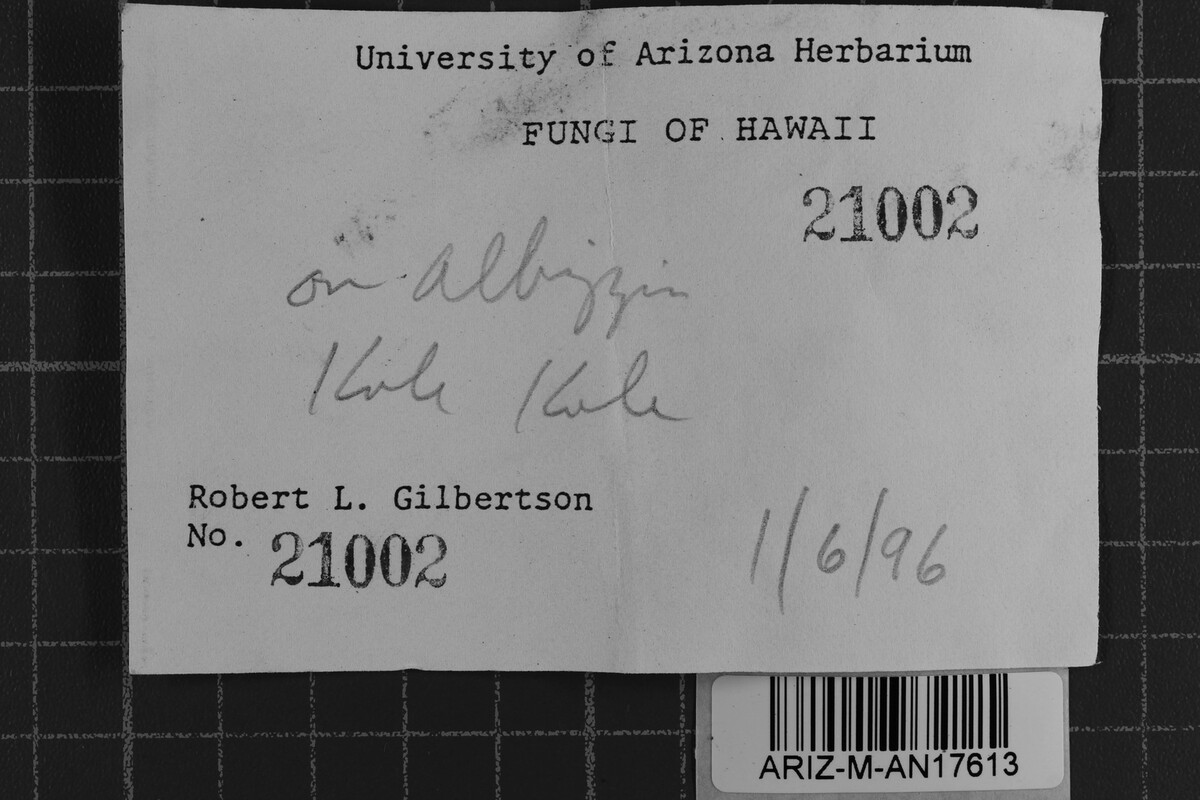 University of Arizona Herbarium
FUNGI OF HAWAII
21002
on Albizzia
Kole Kole
Robert L. Gilbertson
No. 21002
1/6/96
ARIZ-M-AN17613